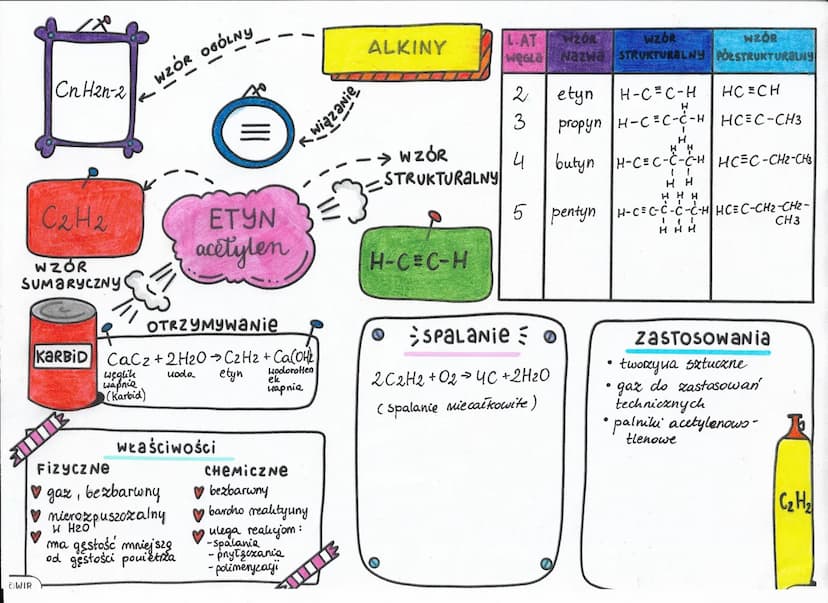 ALKINY
WZÓR OGÓLNY
CnH2n-2
WIĄZANIE
≡
ETYN
acetylen
WZÓR
STRUKTURALNY
H-C≡C-H
C2H2
WZÓR
SUMARYCZNY
L.AT WĘGLA | WZÓR NAZWA | WZÓR STRUKTURALNY | WZÓR PÓŁSTRUKTURALNY
2 | etyn | H-C≡C-H | HC≡CH
3 | propyn | H-C≡C-C-H H H | HC≡C-CH3
4 | butyn | H-C≡C-C-C-H H H H H | HC≡C-CH2-CH3
5 | pentyn | H-C≡C-C-C-C-H H H H H H H | HC≡C-CH2-CH2-CH3
OTRZYMYWANIE
KARBID
CaC2 + 2H2O → C2H2 + Ca(OH)2
węglik wapnia (Karbid)
woda
etyn
wodorotlenek wapnia
SPALANIE
2C2H2 + O2 → 4C + 2H2O
(spalanie niecałkowite)
ZASTOSOWANIA
• tworzywa sztuczne
• gaz do zastosowań
technicznych
• palniki acetylenowo-
tlenowe
C2H2
WŁAŚCIWOŚCI
FIZYCZNE
gaz, bezbarwny
nierozpuszczalny
w H2O
ma gęstość mniejszą
od gęstości powietrza
CHEMICZNE
bezbarwny
bardzo reaktywny
ulega reakcjom:
- spalania
- przyłączania
- polimeryzacji